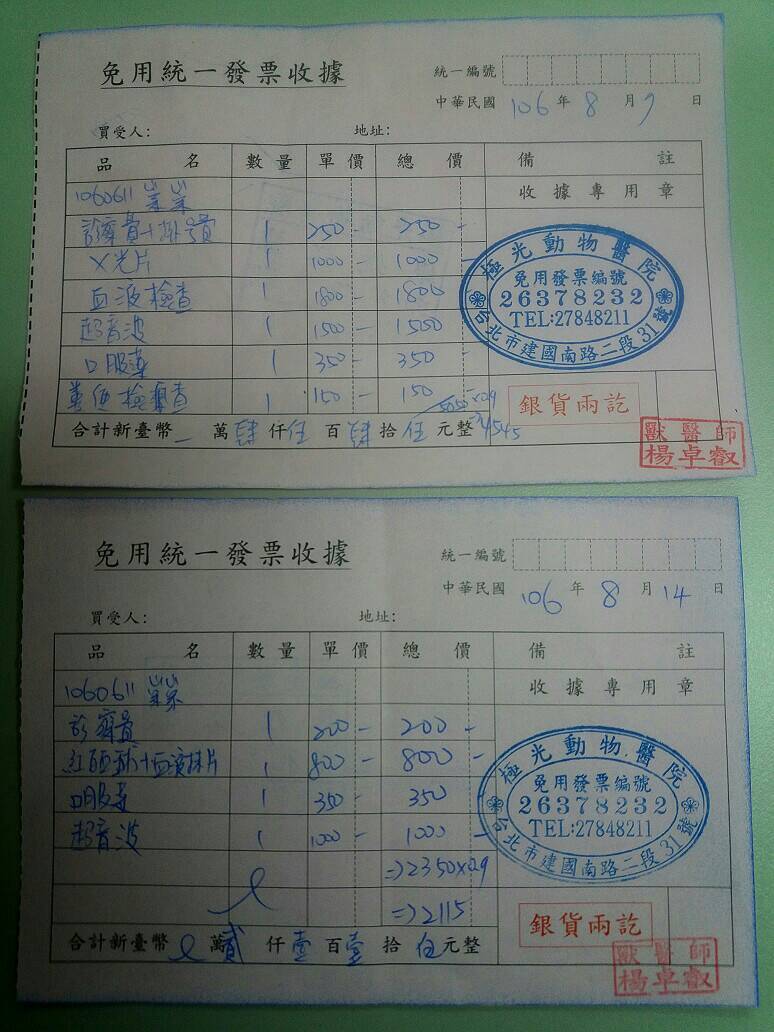 免用統一發票收據
統一編號
中華民國 106 年 8 月 7 日
買受人: 地址:
品名 數量 單價 總價 備註
1060611 業業 收據專用章
診察費+掛號費 1 250- 250-
X光片 1 1000- 1000-
血液檢查 1 1800- 1800
超音波 1 1500- 1500
口服藥 1 350- 350
糞便檢查 1 150- 150
5050×0.9
4545
合計新臺幣 萬肆仟伍百肆拾伍元整
極光動物醫院
免用發票編號
26378232
TEL:27848211
台北市建國南路二段31號
銀貨兩訖
獸醫師
楊卓叡
免用統一發票收據
統一編號
中華民國 106 年 8 月 14 日
買受人: 地址:
品名 數量 單價 總價 備註
1060611 業業 收據專用章
診察費 1 200- 200-
血液抹片 1 800- 800-
口服藥 1 350- 350-
超音波 1 1000- 1000-
=>2350×0.9
=>2115
合計新臺幣 萬貳仟壹百壹拾伍元整
極光動物醫院
免用發票編號
26378232
TEL:27848211
台北市建國南路二段31號
銀貨兩訖
獸醫師
楊卓叡